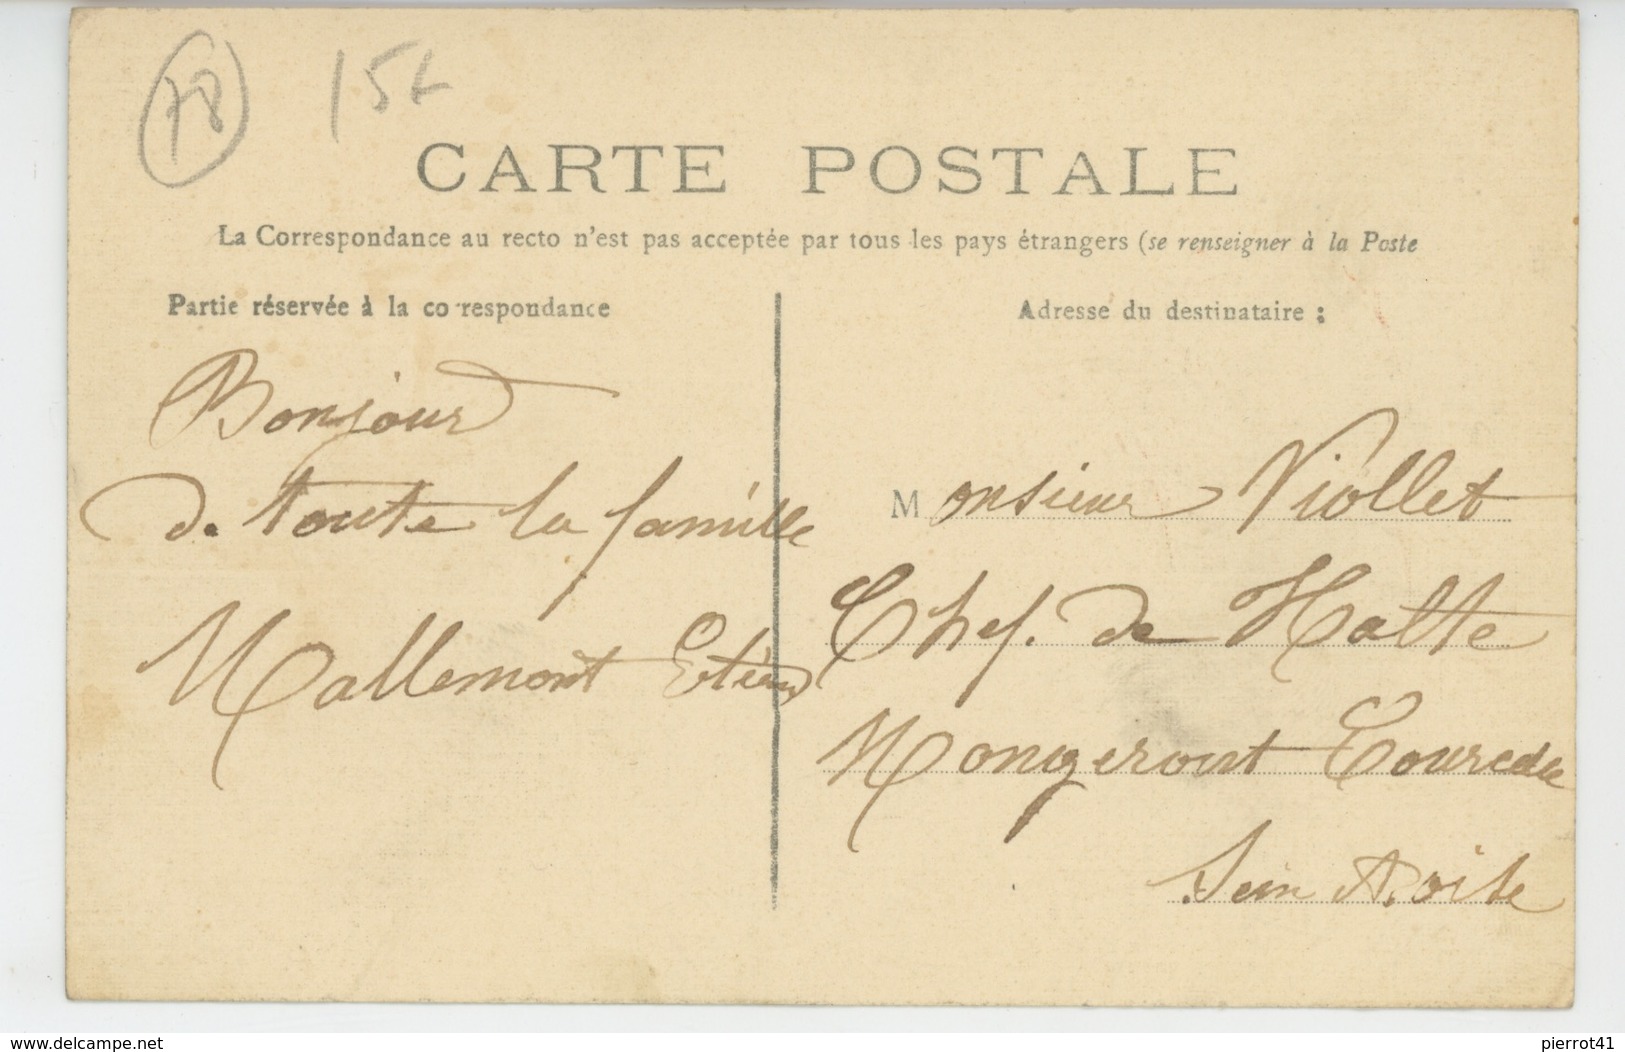 78
15£
CARTE POSTALE
La Correspondance au recto n'est pas acceptée par tous les pays étrangers (se renseigner à la Poste
Partie réservée à la correspondance
Bonjour
de toute la famille
Mallemont
Adresse du destinataire :
Monsieur Viollet
Chef. de Halte
Mongerout
Sein &. oise
www.delcampe.net
pierrot41